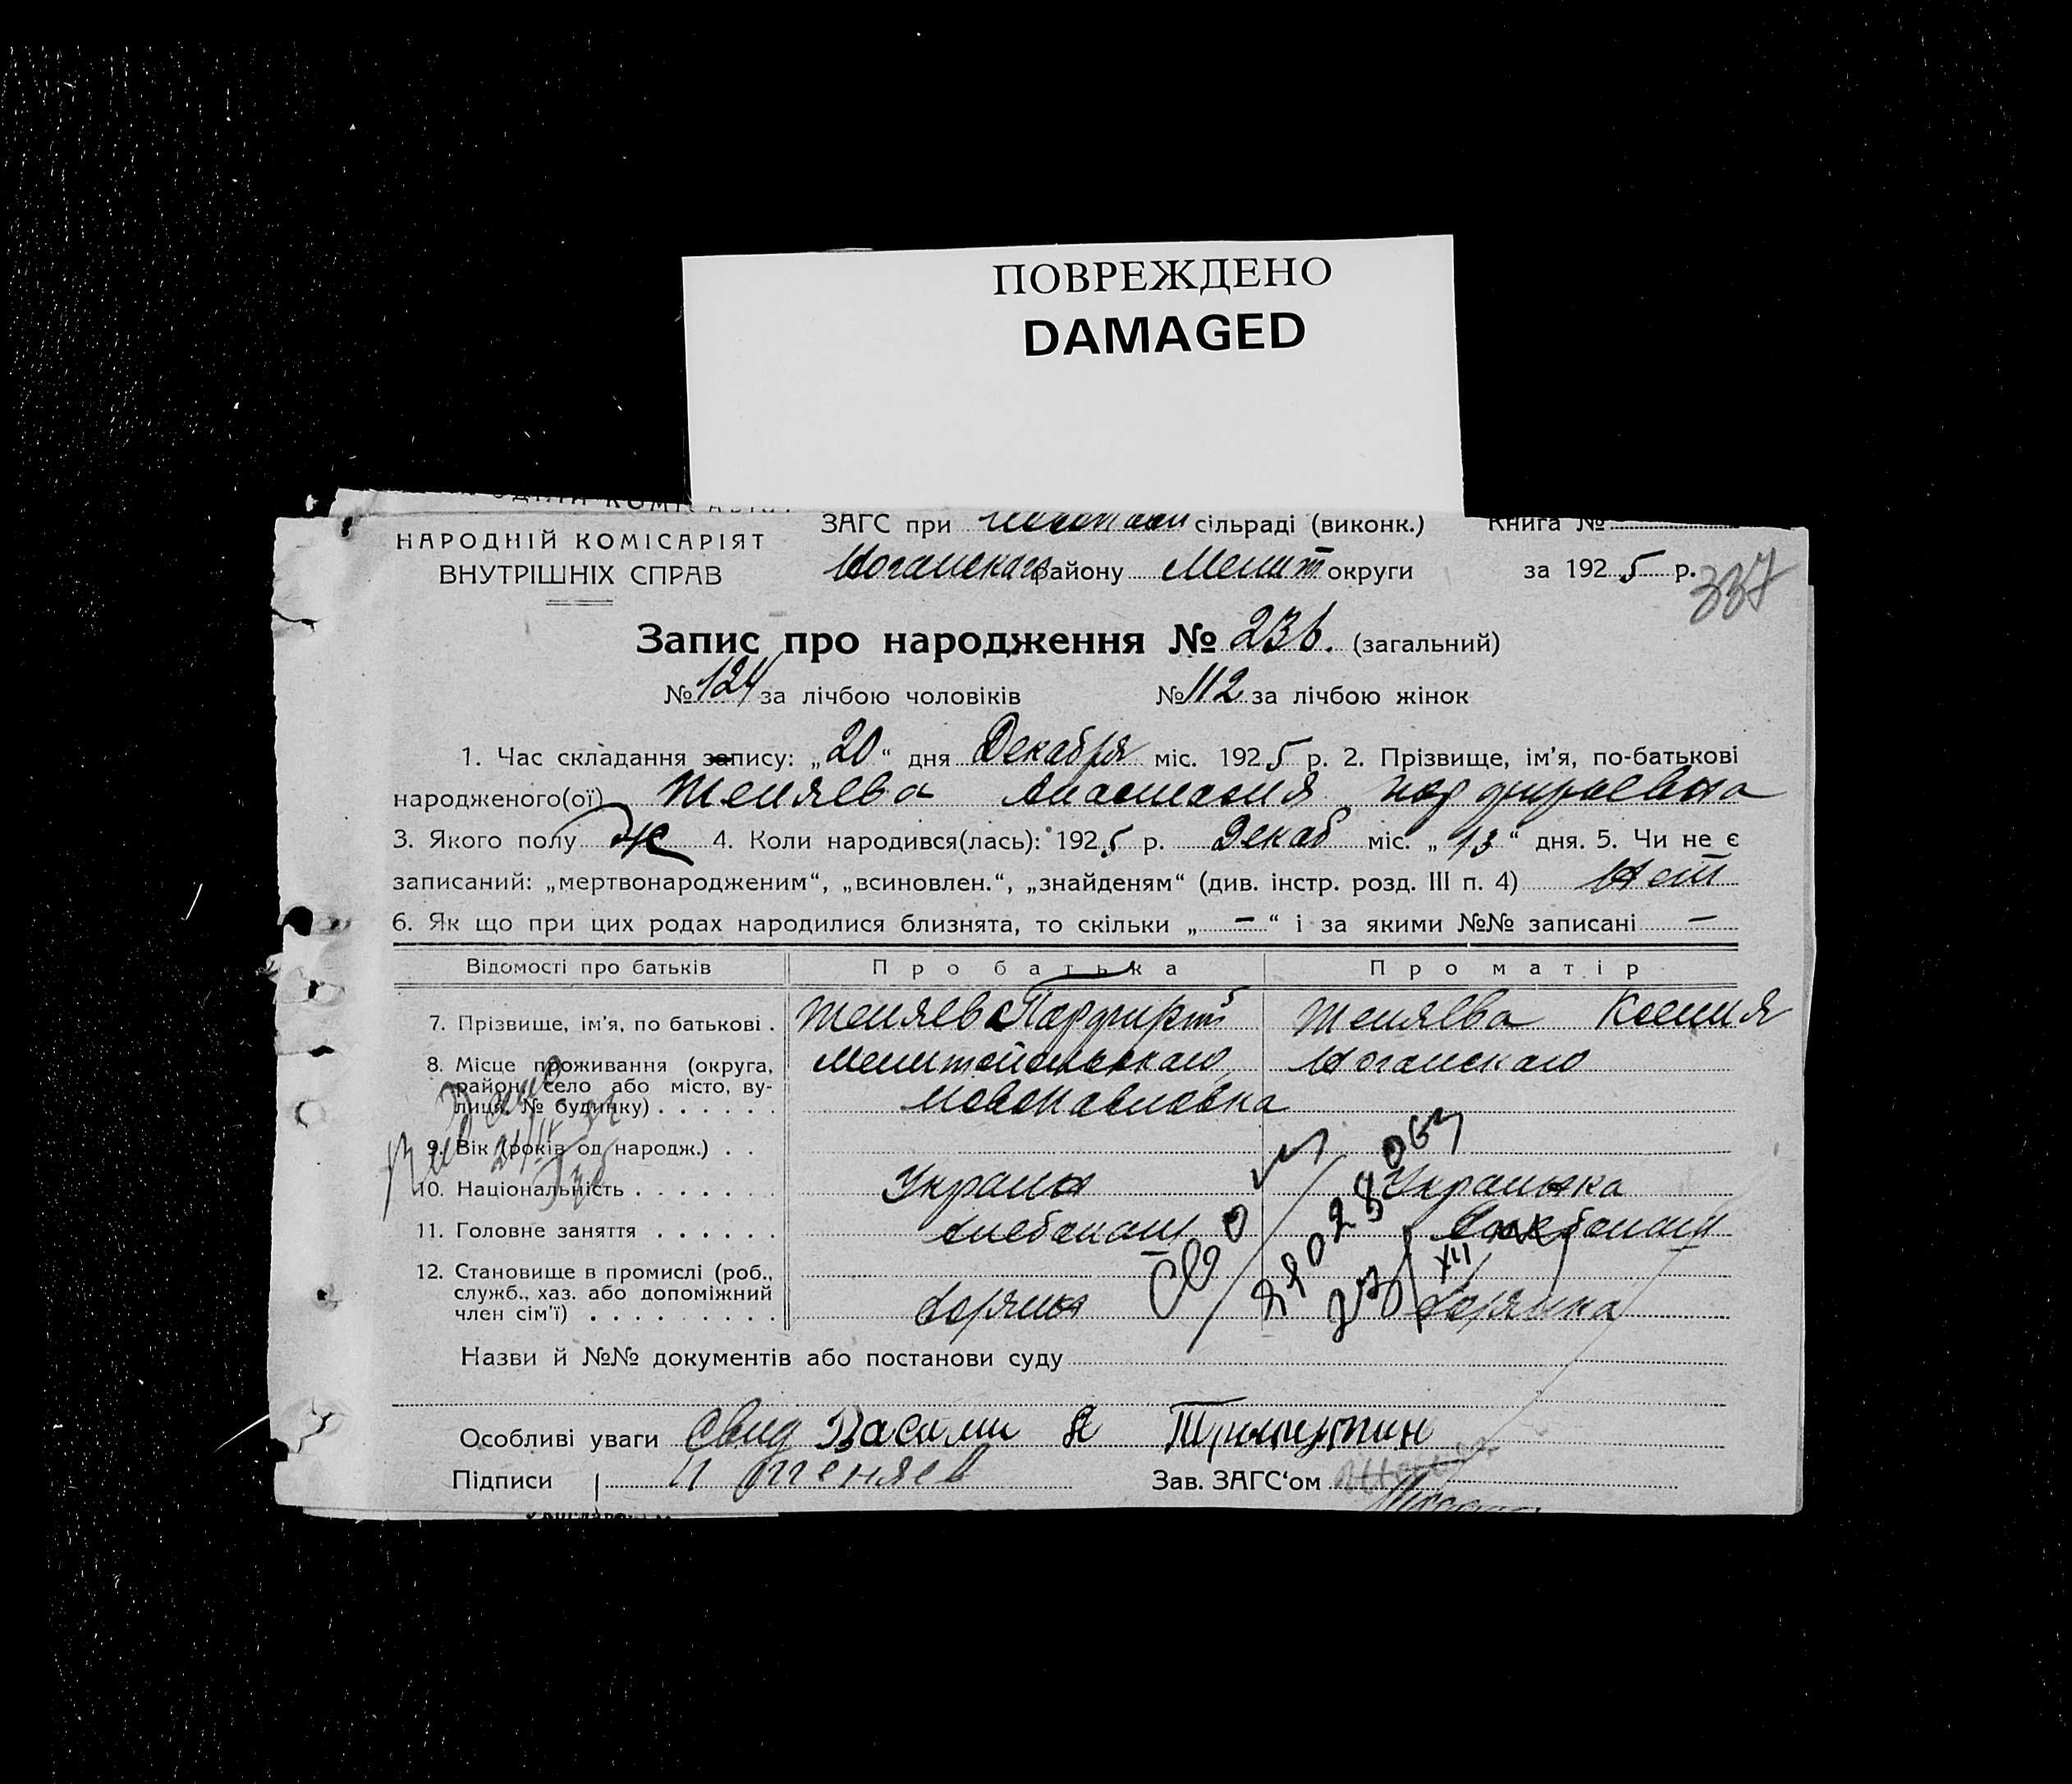 ПОВРЕЖДЕНО
DAMAGED
НАРОДНІЙ КОМІСАРІЯТ
ВНУТРІШНІХ СПРАВ
ЗАГС при сільраді (виконк.) Книга №
Ноганского району Мелит округи за 1925 р.
337
Запис про народження № 236. (загальний)
№ 124 за лічбою чоловіків № 112 за лічбою жінок
1. Час складання запису: „20“ дня Декабря міс. 1925 р. 2. Прізвище, ім’я, по-батькові
народженого(ої) Теняева Анастасия Порфирьевна
3. Якого полу Ж 4. Коли народився(лась): 1925 р. Декаб міс. „13“ дня. 5. Чи не є
записаний: „мертвонародженим“, „всиновлен.“, „знайденям“ (див. інстр. розд. III п. 4) Нет
6. Як що при цих родах народилися близнята, то скільки „ — “ і за якими №№ записані —
Відомості про батьків Про батька Про матір
7. Прізвище, ім’я, по батькові . Теняев Порфирий Теняева Ксения
8. Місце проживання (округа, Мелитопольского Ноганского
район, село або місто, ву-
лиця, № будинку) . . . . . . Новопавловка
9. Вік (років од народж.) . .
10. Національність . . . . . . . Украин Украинка
11. Головне заняття . . . . . . хлебопаш хлебопаш
12. Становище в промислі (роб.,
служб., хаз. або допоміжний
член сім’ї) . . . . . . . . .
Назви й №№ документів або постанови суду
Особливі уваги Свид
Підписи П Теняев Зав. ЗАГС‘ом